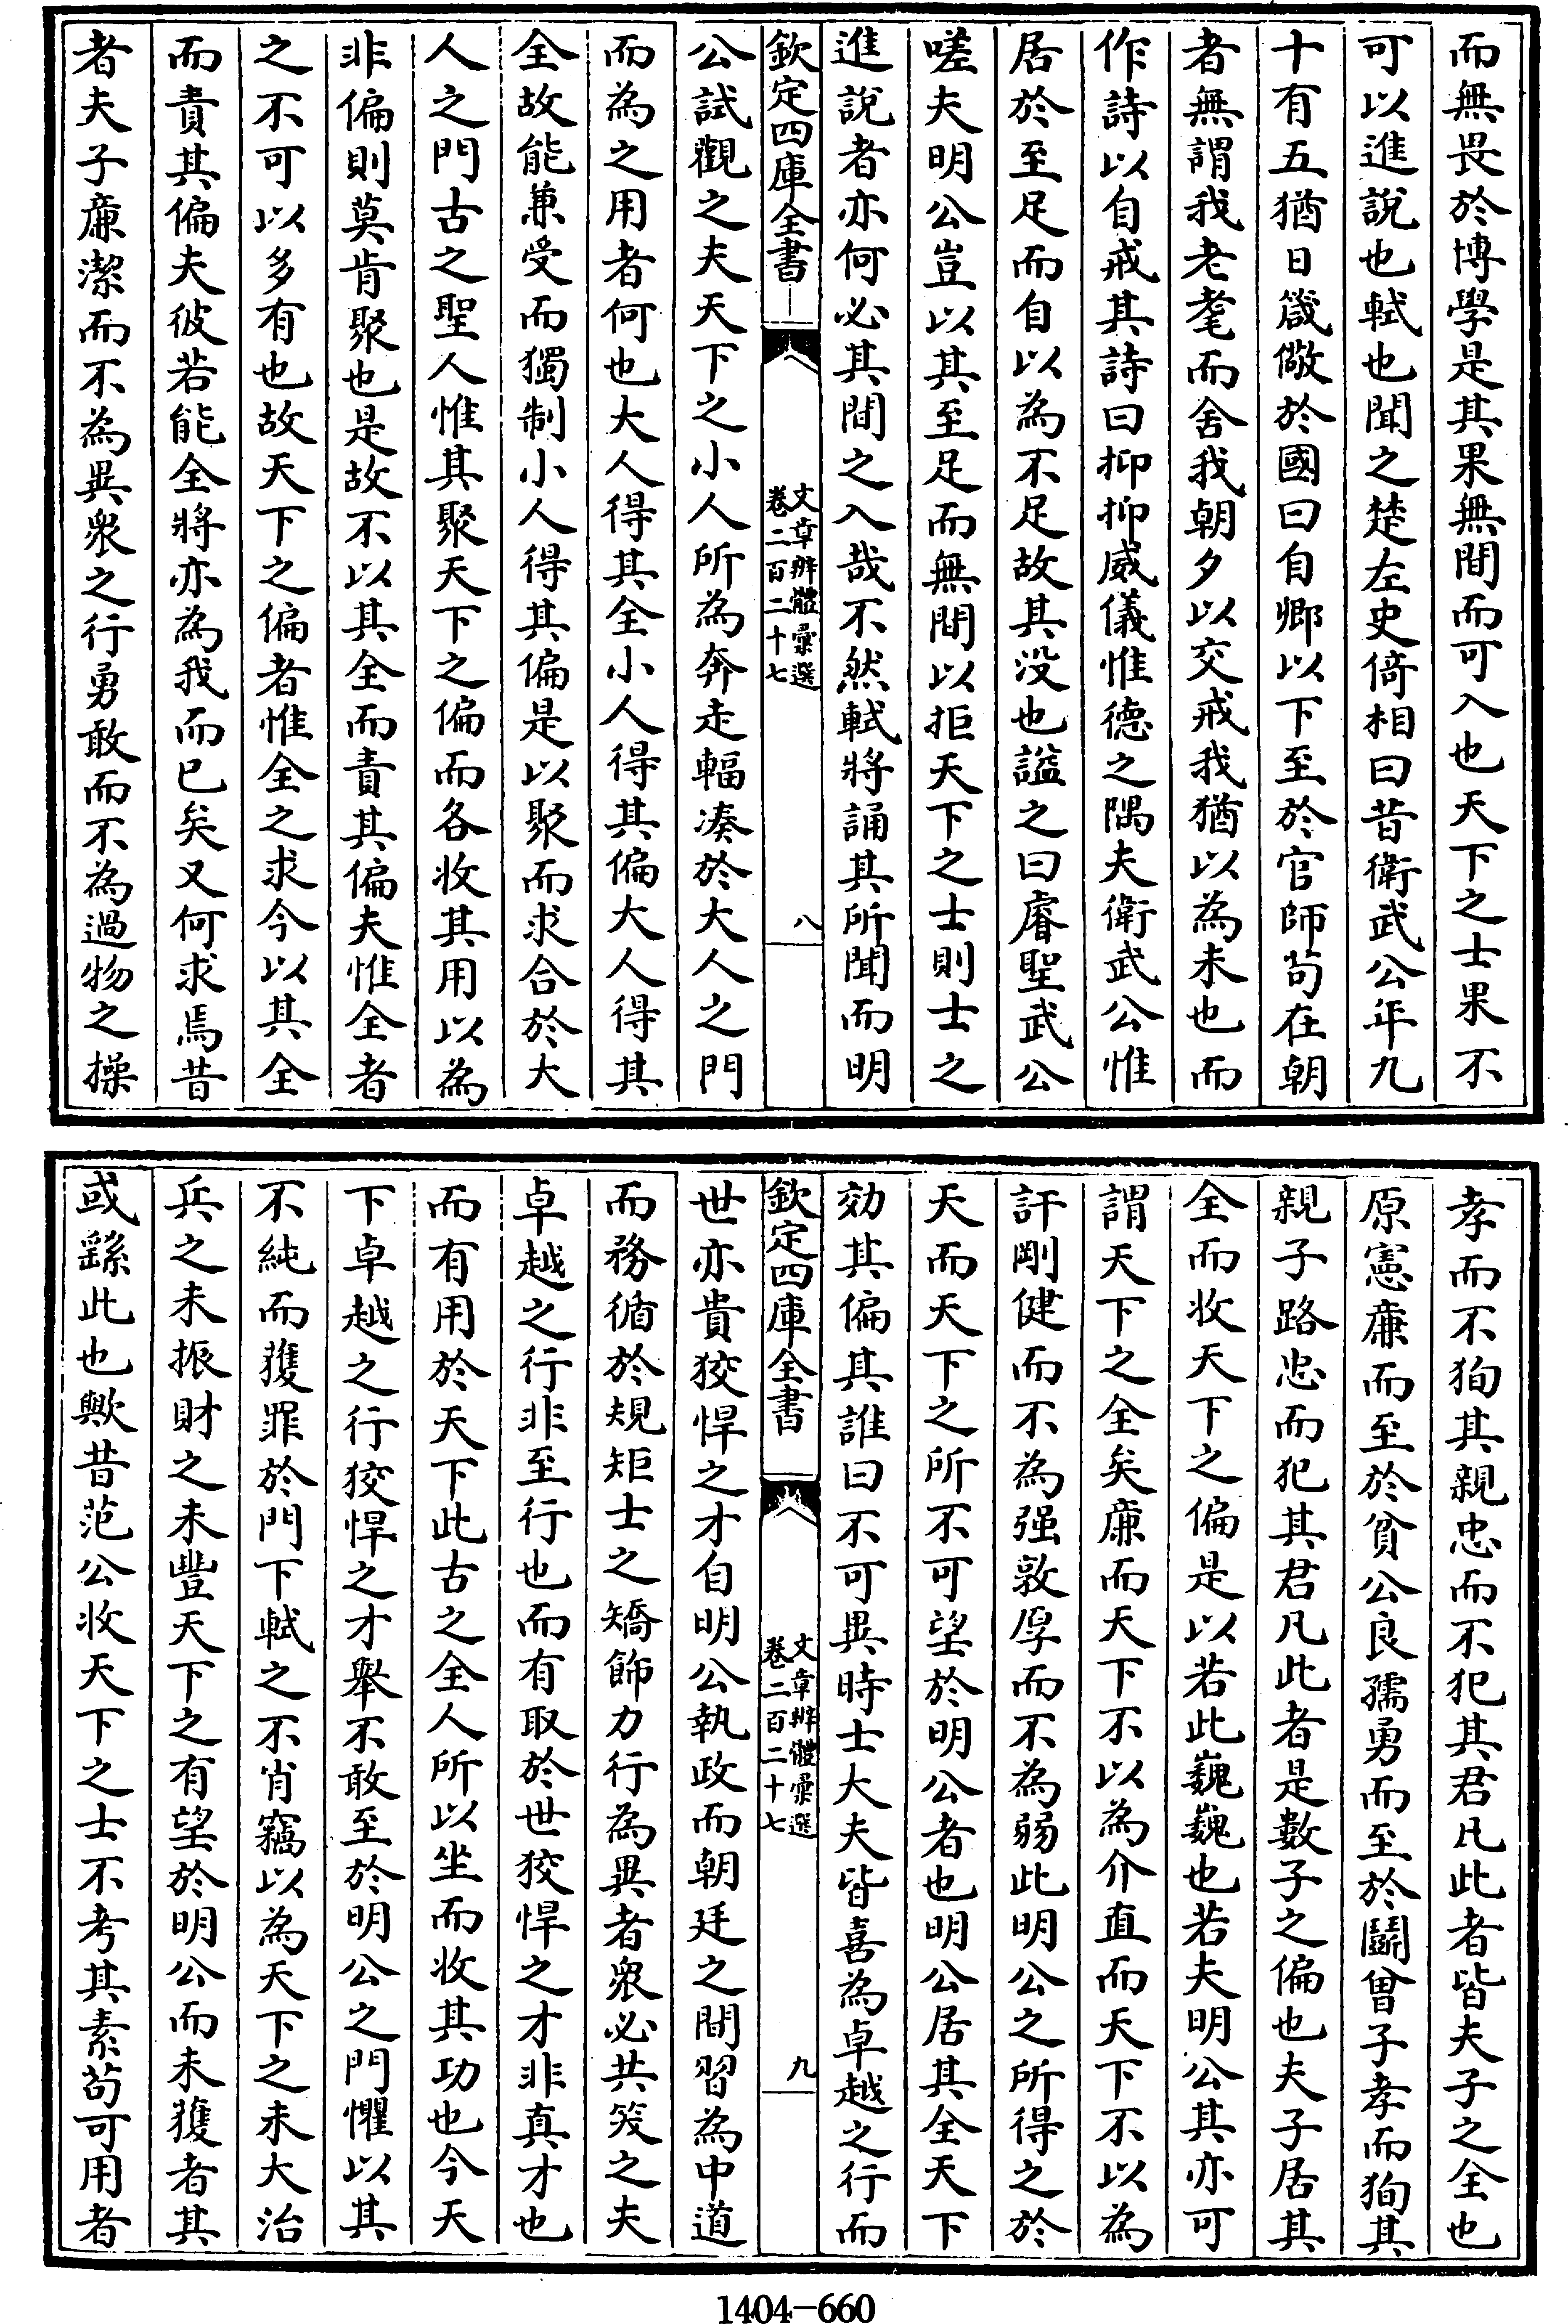 而無畏於博學是其果無間而可入也天下之士果不
可以進說也軾也聞之楚左史倚相曰昔衛武公年九
十有五猶日箴儆於國曰自卿以下至於官師苟在朝
者無謂我老耄而舍我朝夕以交戒我猶以為未也而
作詩以自戒其詩曰抑抑威儀惟德之隅夫衛武公惟
居於至足而自以為不足故其没也諡之曰睿聖武公
嗟夫明公豈以其至足而無間以拒天下之士則士之
進說者亦何必其間之入哉不然軾將誦其所聞而明
欽定四庫全書
文章辨體彙選
卷二百二十七
八
公試觀之夫天下之小人所為奔走輻湊於大人之門
而為之用者何也大人得其全小人得其偏大人得其
全故能兼受而獨制小人得其偏是以聚而求合於大
人之門古之聖人惟其聚天下之偏而各收其用以為
非偏則莫肯聚也是故不以其全而責其偏夫惟全者
之不可以多有也故天下之偏者惟全之求今以其全
而責其偏夫彼若能全將亦為我而已矣又何求焉昔
者夫子廉潔而不為異衆之行勇敢而不為過物之操
孝而不狥其親忠而不犯其君凡此者皆夫子之全也
原憲廉而至於貧公良孺勇而至於鬬曾子孝而狥其
親子路忠而犯其君凡此者是數子之偏也夫子居其
全而收天下之偏是以若此巍巍也若夫明公其亦可
謂天下之全矣廉而天下不以為介直而天下不以為
訐剛健而不為强敦厚而不為弱此明公之所得之於
天而天下之所不可望於明公者也明公居其全天下
効其偏其誰曰不可異時士大夫皆喜為卓越之行而
欽定四庫全書
文章辨體彙選
卷二百二十七
九
世亦貴狡悍之才自明公執政而朝廷之間習為中道
而務循於規矩士之矯飾力行為異者衆必共笑之夫
卓越之行非至行也而有取於世狡悍之才非真才也
而有用於天下此古之全人所以坐而收其功也今天
下卓越之行狡悍之才舉不敢至於明公之門懼以其
不純而獲罪於門下軾之不肖竊以為天下之未大治
兵之未振財之未豐天下之有望於明公而未獲者其
或繇此也歟昔范公收天下之士不考其素苟可用者
1404-660